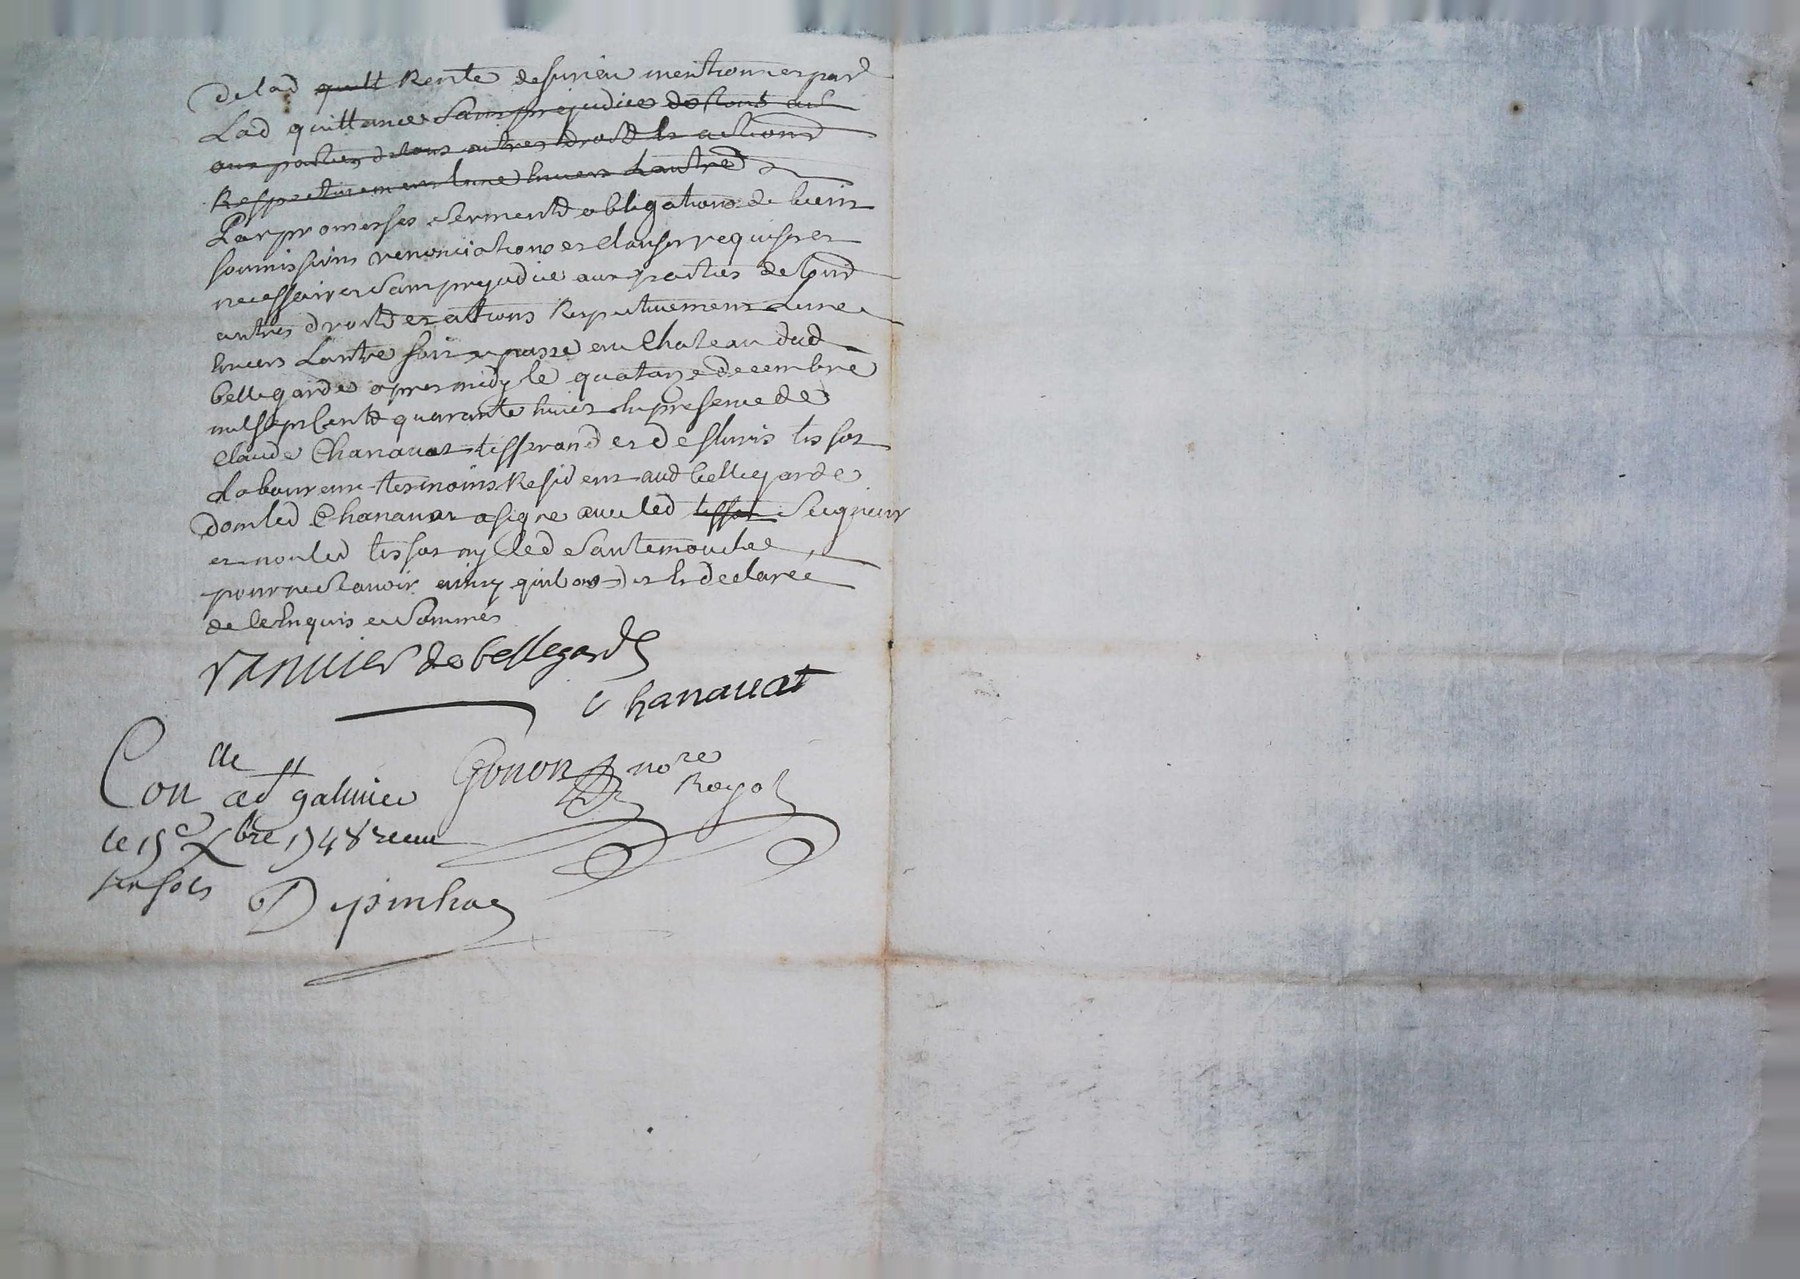 de lad quitt Rente de surieu mentionnee par
Lad quittance Sans prejudice de tous au
aux parties de tous autres droits et actions
Respectivement lune envers Lautre
Par promesses serments obligations de biens
soumissions renonciations et clauses requises et
necessaires Sans prejudice aux parties de tous
autres droits et actions Respectivement Lune
envers Lautre fait et passé au Chateau dud
bellegarde apres midy le quatorze decembre
mil sept Cents quarante huict En presence de
Claude Chanavat tisserand et de tissot
Laboureur tesmoins Residents aud bellegarde
dont led Chanavat a signé avec led tissot Seigneur
et non led tissot ny led Santemouche
pour ne scavoir ainsy quils ont dit et declaré
de ce Enquis et Sommés
vanuier de bellegarde
Chanavat
Con lle ad galmier Gonon nore Royal
le 15e Xbre 1748 receu
sols